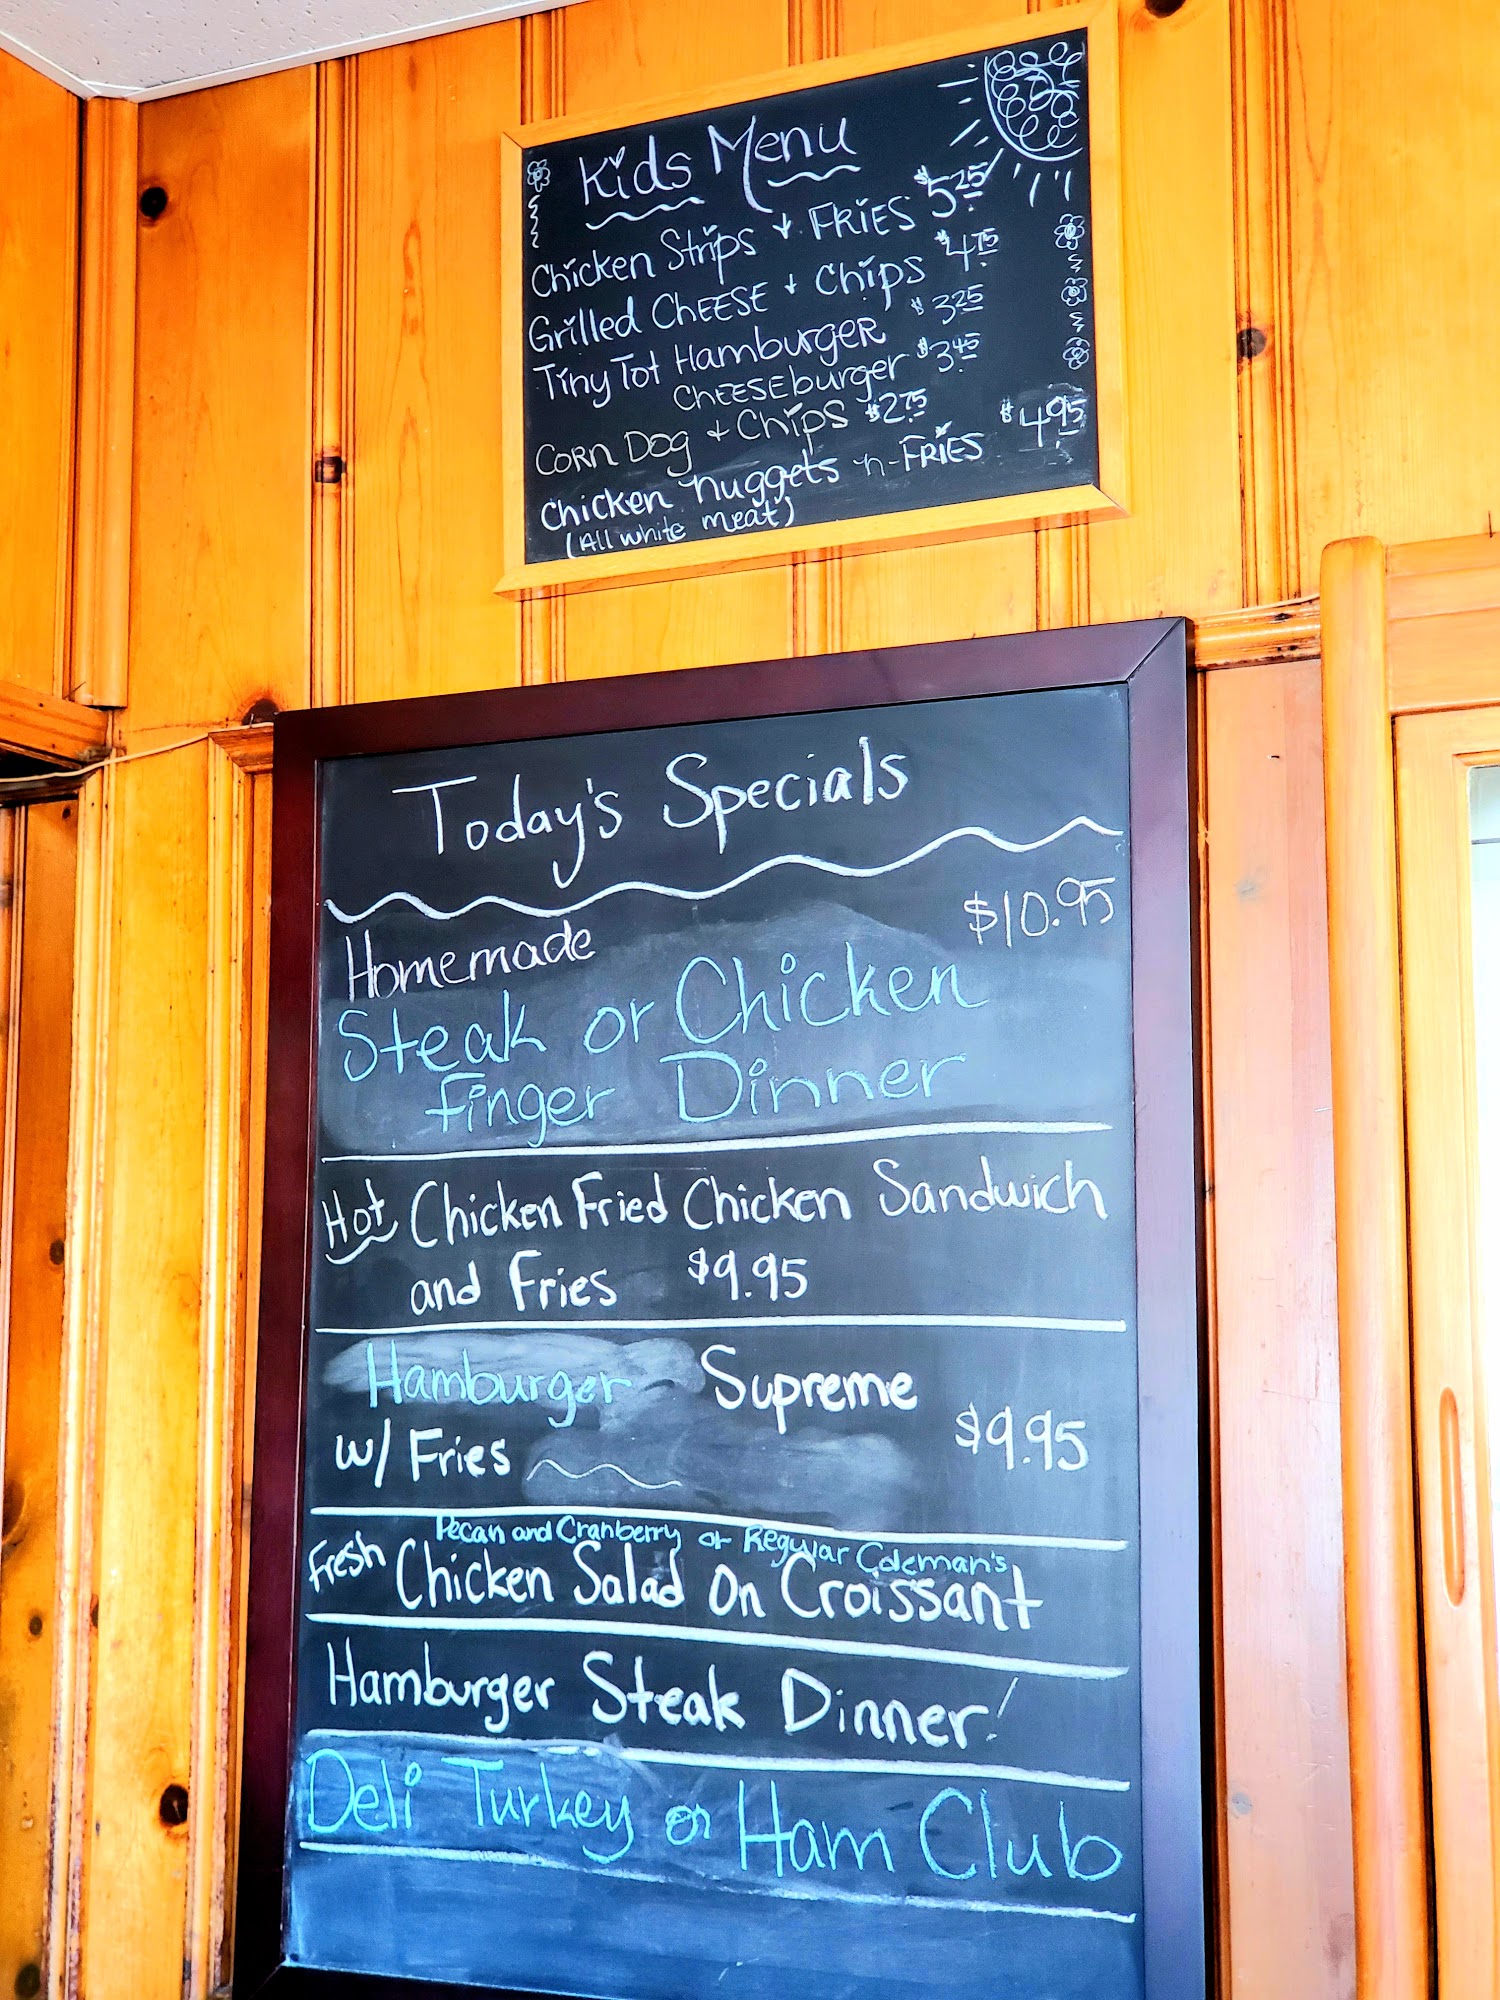 Kids Menu
Chicken Strips + FRiES $5.25
Grilled CHEESE + Chips $4.75
Tiny Tot Hamburger $3.25
CHEESEburger $3.45
CORN DOG + Chips $2.75
Chicken Nuggets 'n-FRiES $4.95
(All white meat)
Today's Specials
Homemade $10.95
Steak or Chicken
finger Dinner
Hot Chicken Fried Chicken Sandwich
and Fries $9.95
Hamburger Supreme
w/ Fries $9.95
Pecan and Cranberry or Regular Coleman's
Fresh Chicken Salad On Croissant
Hamburger Steak Dinner!
Deli Turkey or Ham Club